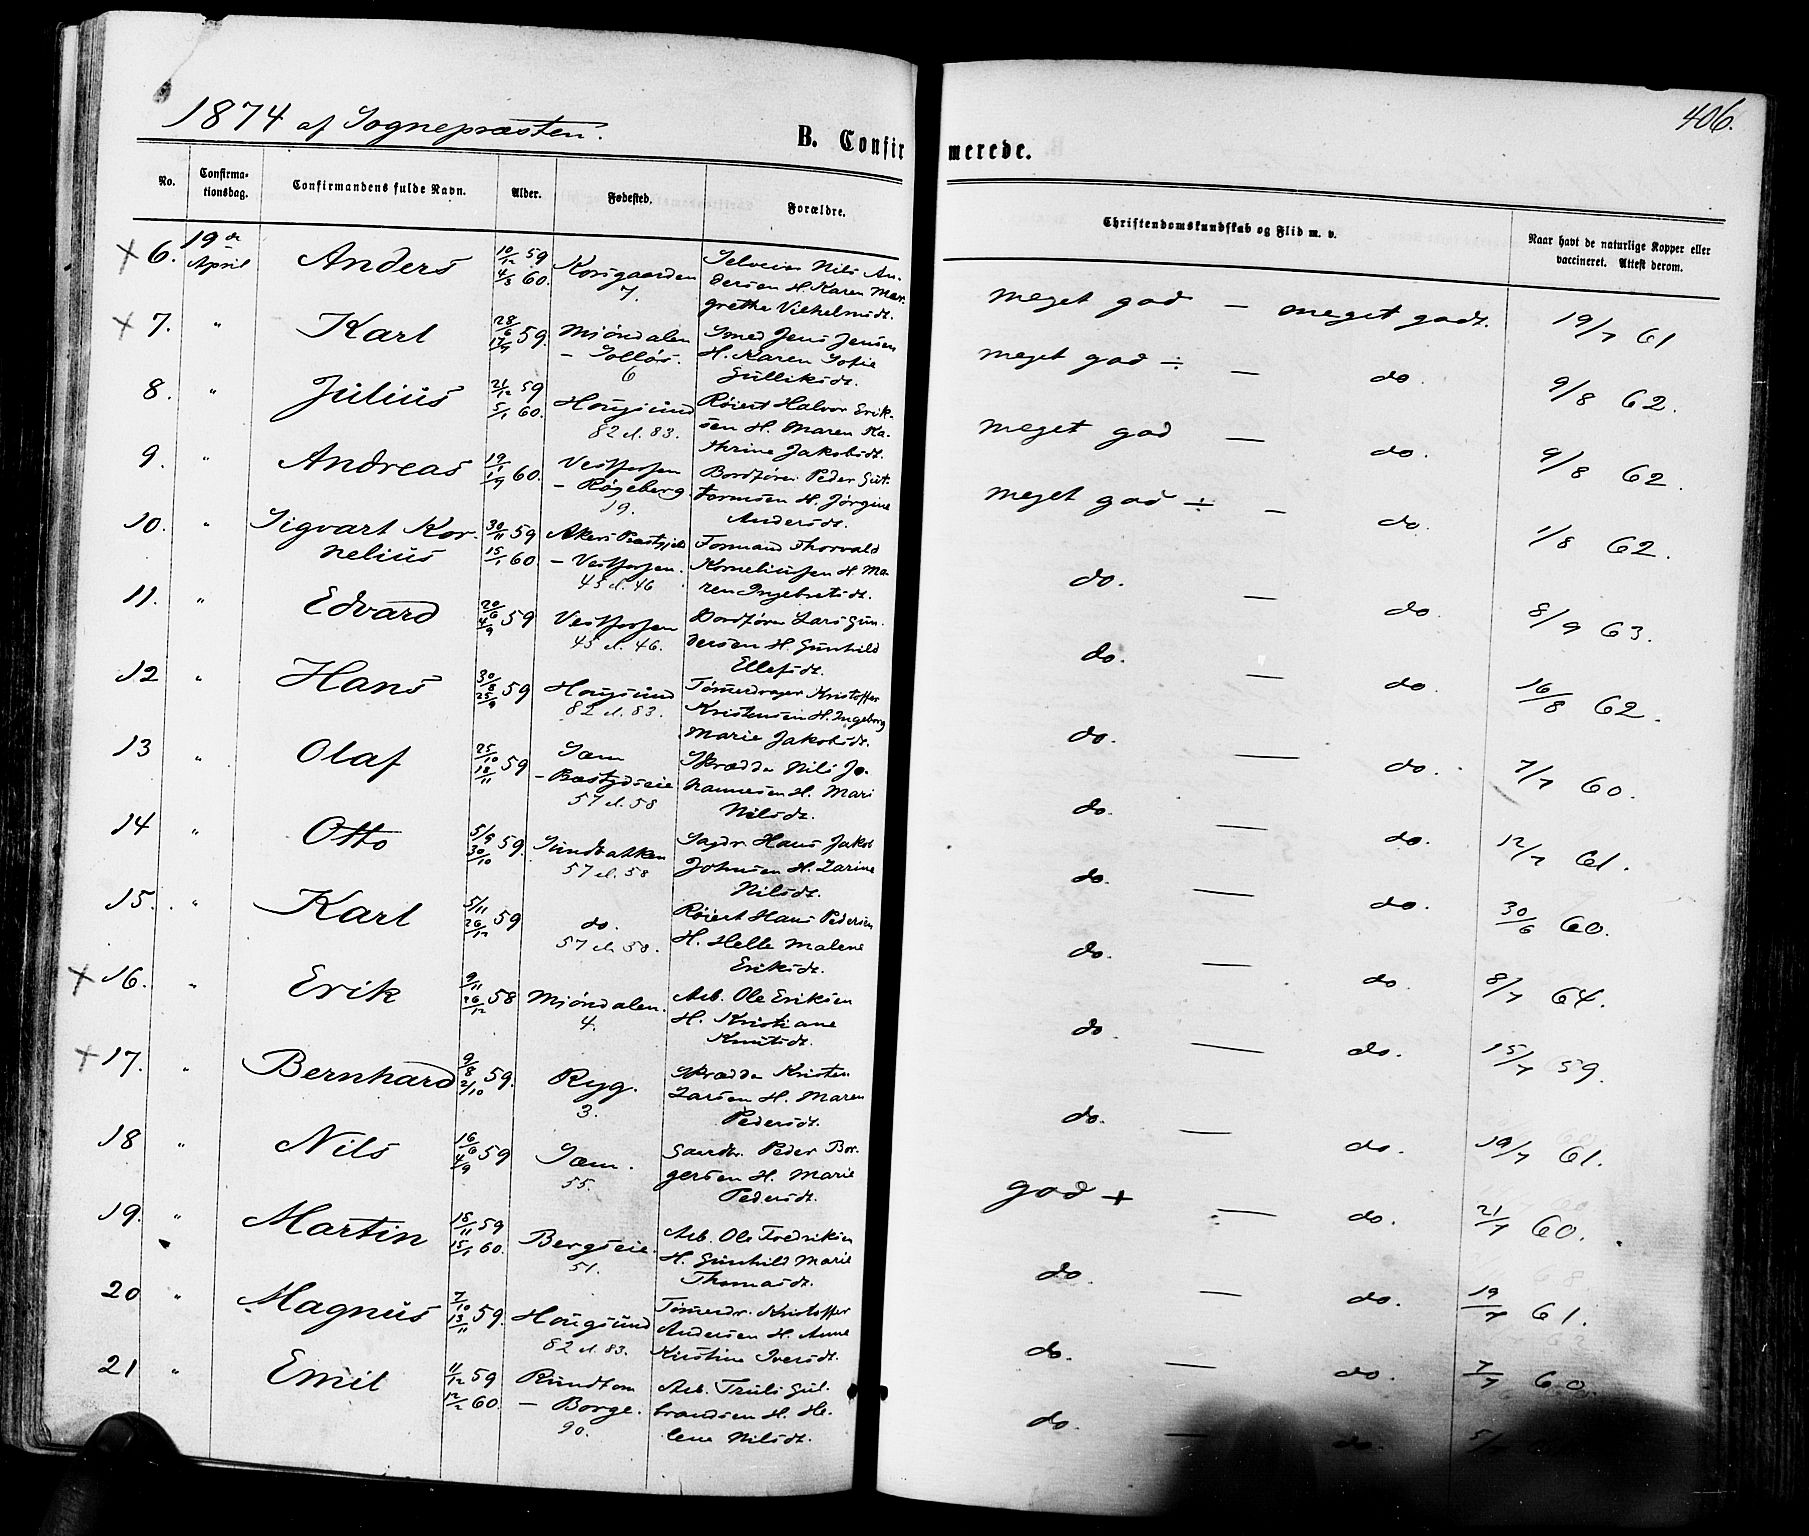 406.
1874 af Sognepræsten.
B. Confirmerede.
No. Confirma-tionsdag. Confirmandens fulde Navn. Alder. Fødested. Forældre. Christendomskundskab og Flid m. v. Naar havt de naturlige Kopper eller vaccineret. Attest derom.
+ 6. 19de April Anders 10/12 59 4/3 60. Korsgaarden 7. Selveier Nils An-
dersen H. Karen Mar-
grethe Vilhelmsdt. meget god — meget godt. 19/7 61
+ 7. " Karl 28/6 59. 17/9 Mjøndalen
- Solløs. 6 Smed Jens Jensen
H. Karen Sofie
Gulliksdt. meget god ÷ — do. 9/8 62.
8. " Julius 21/12 59 5/1 60. Hougsund
82 el. 83. Røiert Halvor Erik-
sen H. Maren Ka-
thrine Jakobsdt. meget god — do. 9/8 62.
9. " Andreas 19/1 60. 1/9 Vestfossen
- Røgeberg.
19. Bordtøm. Peder Gut-
tormsen H. Jørgine
Andersdt. meget god ÷ — do. 1/8 62.
10. " Sigvart Kor-
nelius 30/11 59 15/1 60 Akers Præstgjeld
- Vestfossen.
45 el. 46 Formand Thorvald
Korneliussen H. Ma-
ren Ingebretsdt. do. — do. 8/9 63.
11. " Edvard 20/6 59 4/9 Vestfossen
45 el. 46. Bordtøm. Lars Gun-
dersen H. Gunhild
Ellefsdt. do. — do. 16/8 62.
12 " Hans 30/8 59 25/9 Hougsund
82 el. 83. Tømmerdrager Kristoffer
Kristensen H. Ingeborg
Marie Jakobsdt. do. — do. 7/7 60.
13 " Olaf 25/10 59 18/11 Sem
- Bæstydseie
57 el. 58 Skrædder Nils Jo-
hannesen H. Mari
Nilsdt. do. — do. 12/7 61.
14 " Otto 5/9 59. 30/10 Sundbakken
57 el. 58 Sagdr. Hans Jakob
Johnsen H. Zarine
Nilsdt. do. — do. 30/6 60.
15. " Karl 5/11 59 26/12 do.
57 el. 58. Røiert Hans Pedersen
H. Helle Malene
Eriksdt. do. — do. 8/7 64.
+ 16. " Erik 9/11 58 26/12 Mjøndalen.
4. Arb. Ole Eriksen
H. Kristiane
Knutsdt. do. — do. 15/7 59.
+ 17. " Bernhard 9/8 59. 2/10 Ryg.
3. Skrædder Krister
Larsen H. Maren
Pedersdt. do. — do. 19/7 61.
18 " Nils 16/6 59 4/9 Sem.
55. Gaardbr. Peder Bor-
gersen H. Marie
Pedersdt. god + — do. 21/7 60.
19. " Martin 18/11 59 15/1 60. Bergseie.
51. Arb. Ole Fredriksen
H. Gunhild Marie
Thomasdt. do. — do. 19/7 61.
20 " Magnus 7/10 59. 13/11 Hougsund
82 el. 83. Tømmerdr. Kristoffer
Andersen H. Anne
Kirstine Iversdt. do. — do. 7/7 60.
21 " Emil 11/12 59 12/2 60. Rundtom
- Borge.
90. Arb. Truls Gul-
brandsen H. He-
lene Nilsdt. do. — do. 5/